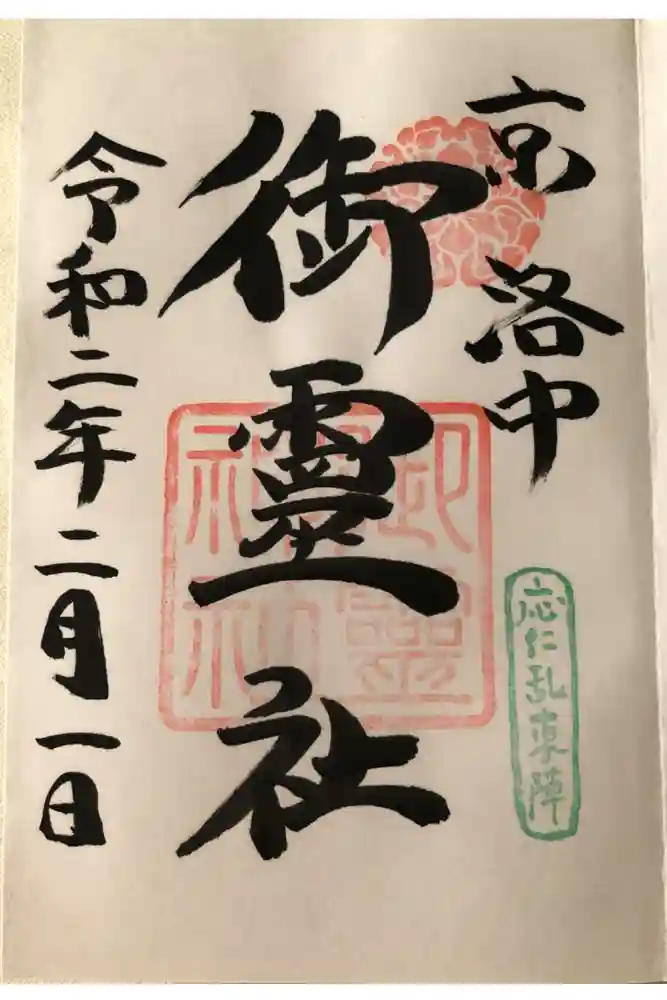 京洛中
御靈社
令和二年二月一日
応仁乱東陣
御靈
神社